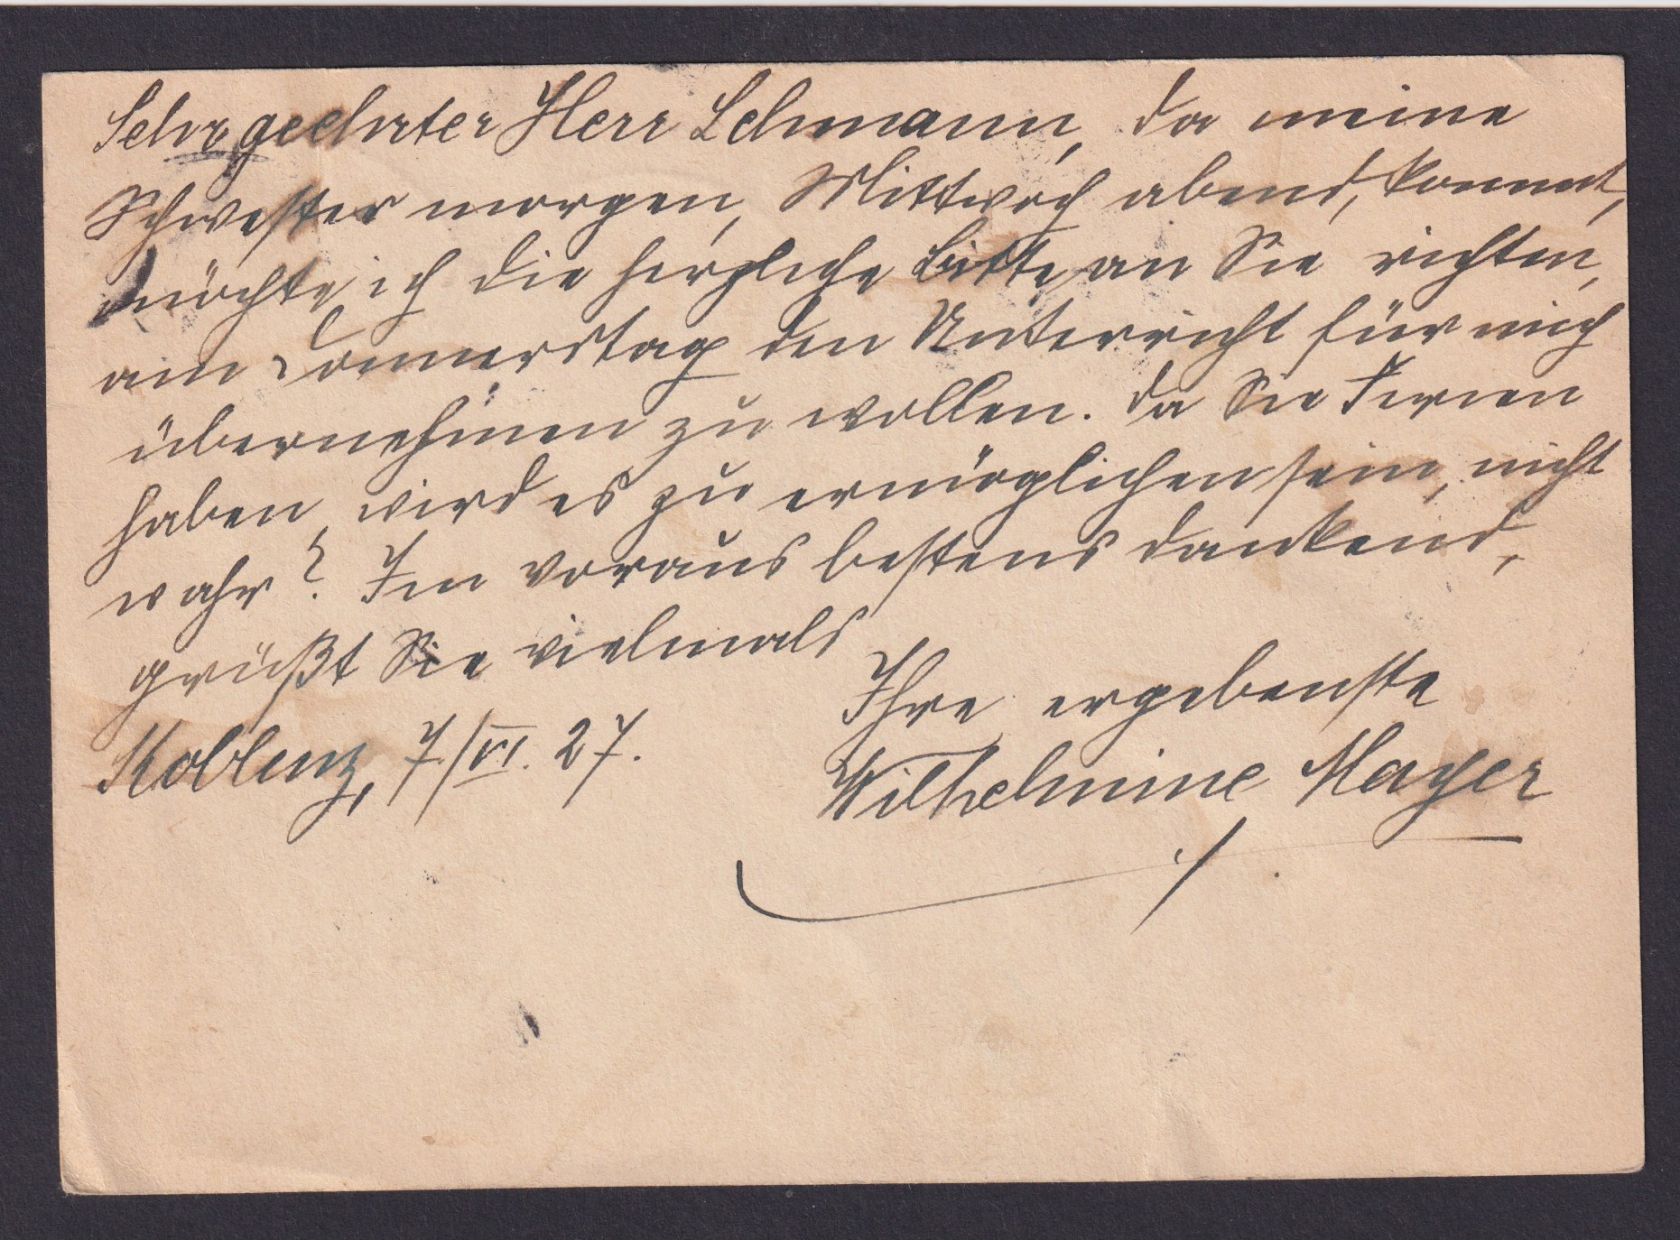 Sehr geehrter Herr Lehmann, da meine
Schwester morgen, Mittwoch abend, kommt,
möchte ich die herzliche Bitte an Sie richten,
am Donnerstag den Unterricht für mich
übernehmen zu wollen. Da Sie Ferien
haben, wird es zu ermöglichen sein, nicht
wahr? Im voraus bestens dankend,
grüßt Sie vielmals
Ihre ergebenste
Koblenz, 7./VI. 27.
Wilhelmine Mayer